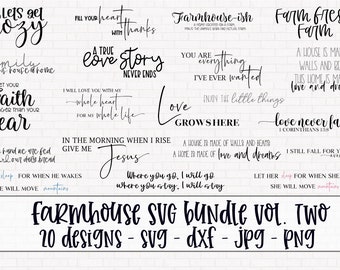 lets get
cozy
FILL YOUR heart
WITH thanks
Farmhouse-ish
FARM FRESH
FARM
A TRUE
love story
NEVER ENDS
YOU ARE
everything
I'VE EVER wanted
A HOUSE IS MADE
WALLS AND BE
THIS HOME IS MA
love and dreams
family
let your
faith
bigger than
your
fear
I WILL LOVE YOU WITH MY
whole heart
FOR MY whole life
ENJOY THE little things
Love
GROWS HERE
love never fai
1 CORINTHIANS 13:8
IN THE MORNING WHEN I RISE
GIVE ME
Jesus
A HOUSE IS MADE OF WALLS AND BEAMS
A HOME IS MADE OF love and dreams
I STILL FALL FOR YOU
our daily bread
sleep FOR WHEN HE WAKES
HE WILL MOVE mountains
Where you go, I will go
Where you stay, I will stay
LET HER sleep FOR WHEN
SHE WILL MOVE mountains
FARMHOUSE SVG BUNDLE VOL. TWO
20 DESIGNS - SVG - DXF - JPG - PNG